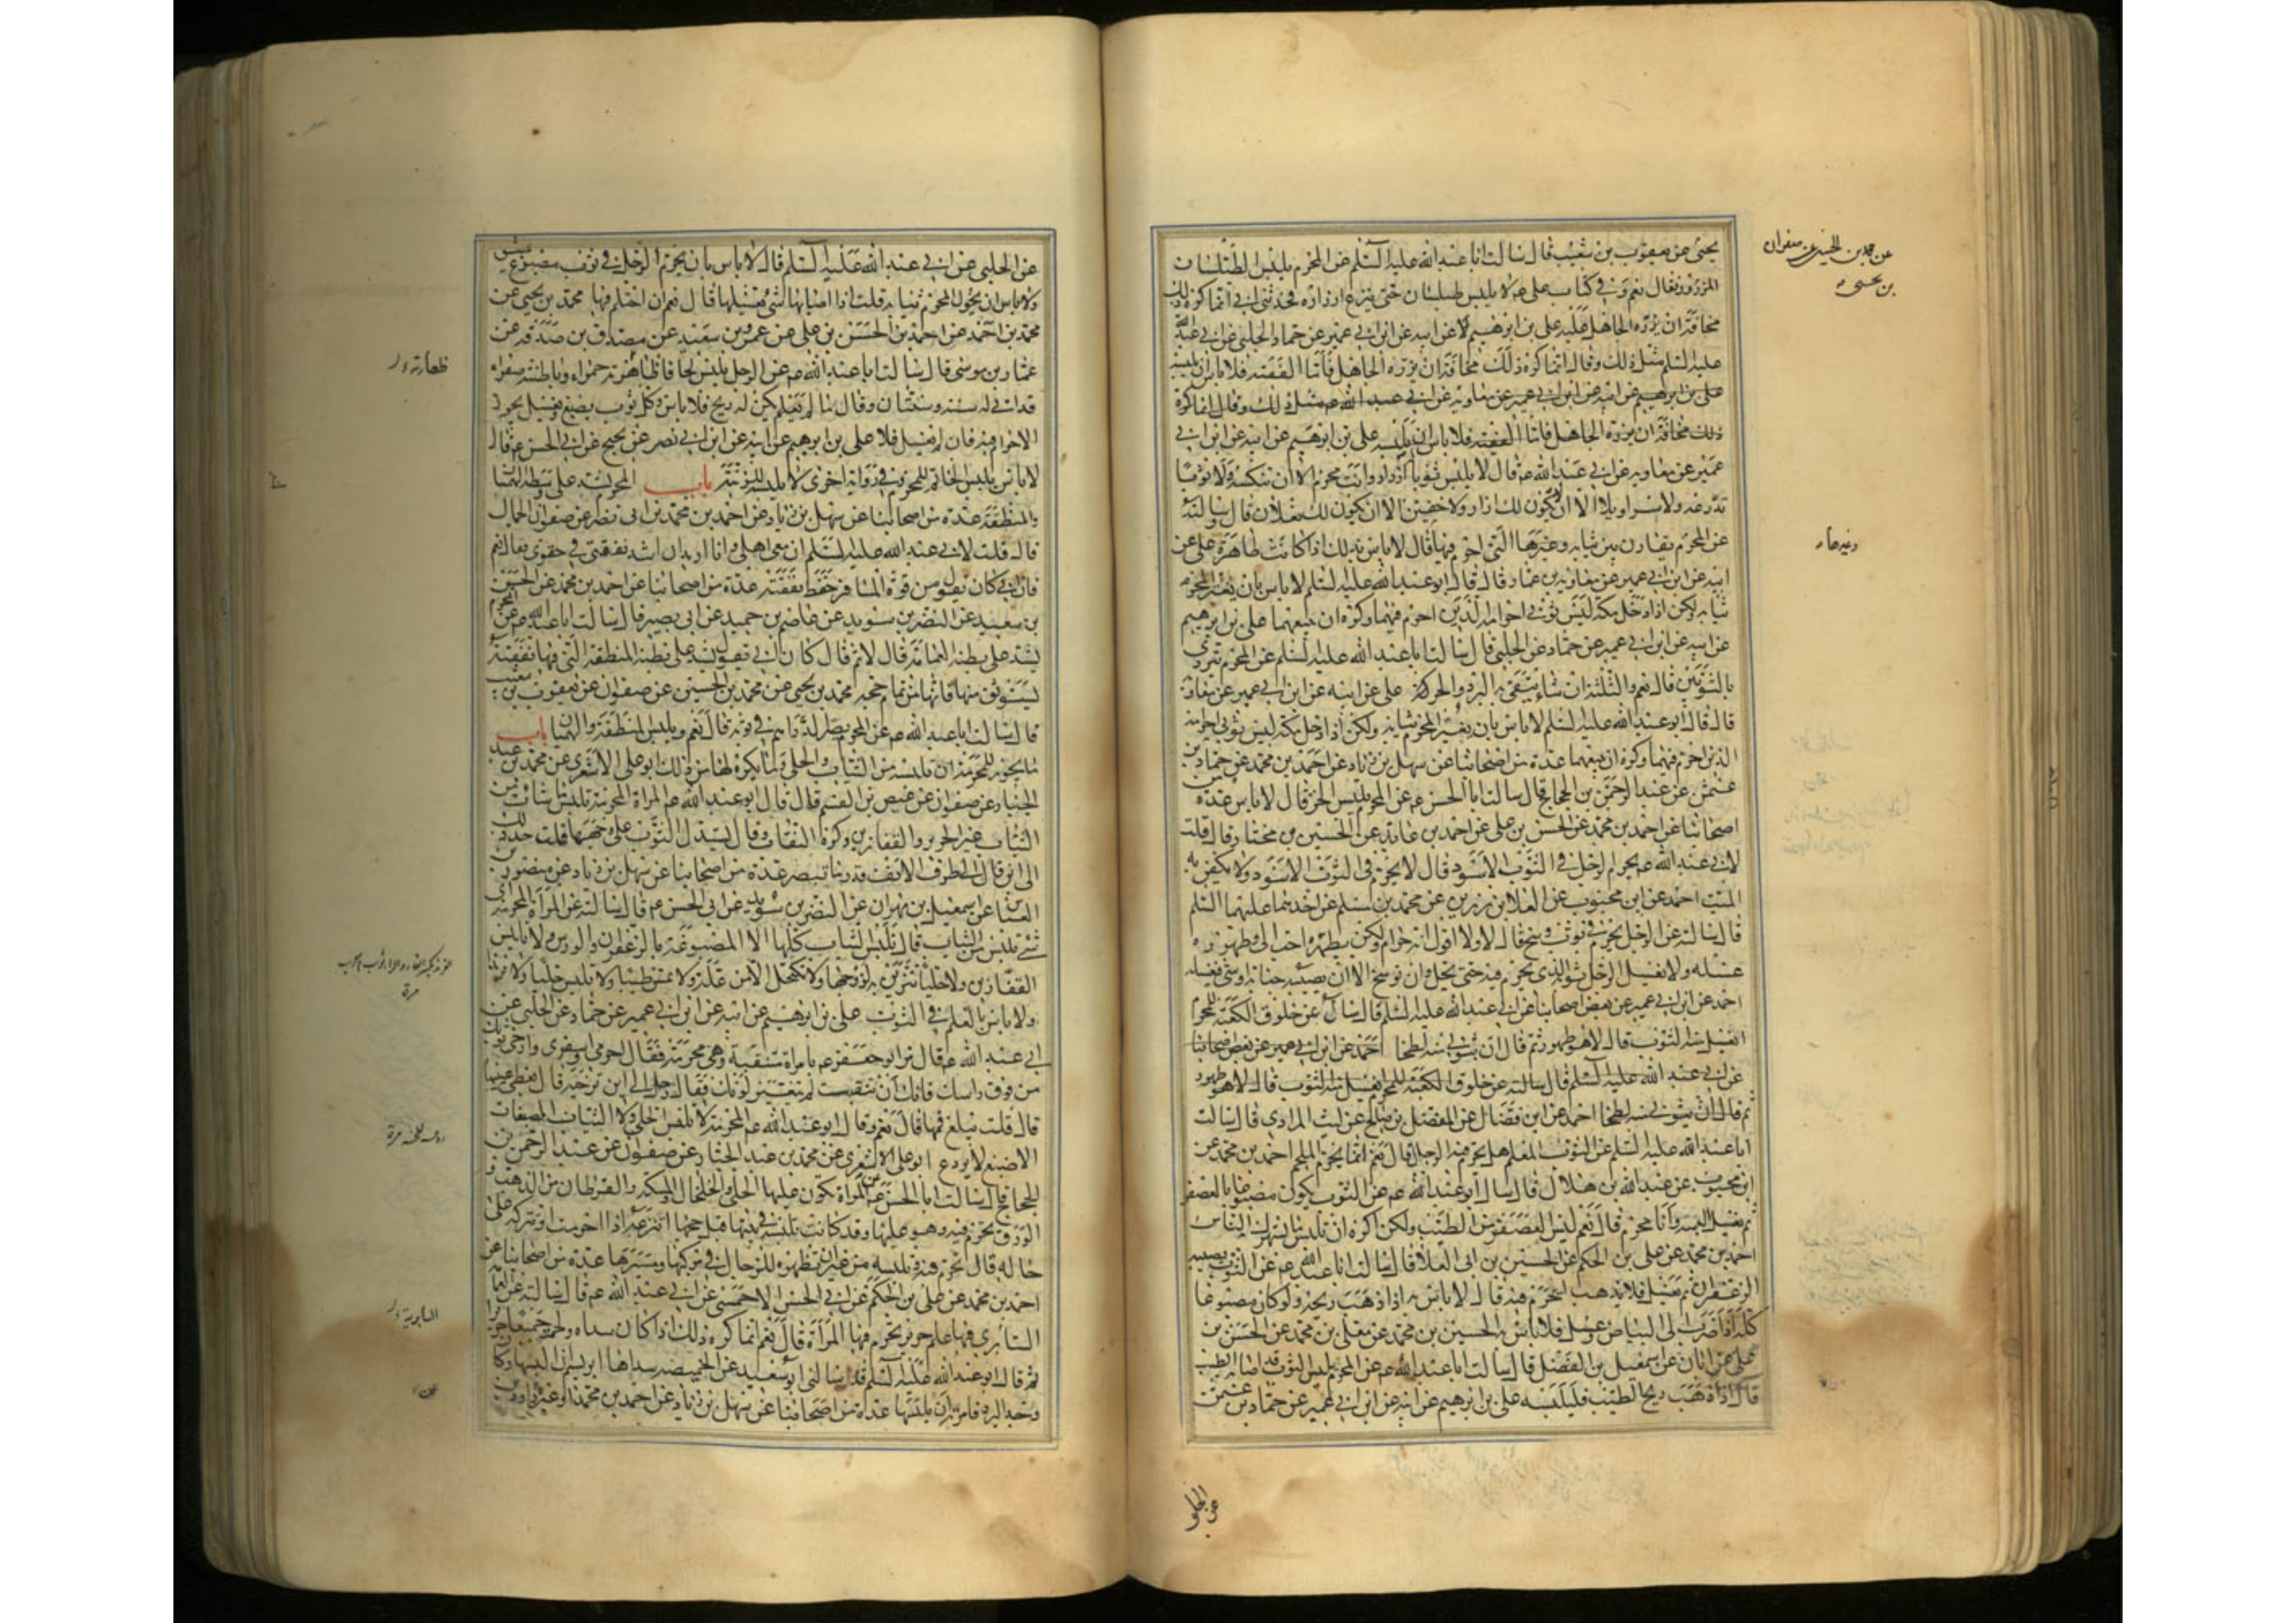 يحيى عن يعقوب بن شعيب قال سالت ابا عبد الله عليه السلم عن المحرم يلبس الطيلسان
المزرور فقال نعم وفي كتاب علي عم لا يلبس طيلسان حتى ينزع ازراره فحدثني ابي انما كره ذلك
مخافة ان يزره الجاهل عليه علي بن ابرهيم عن ابيه عن ابن ابي عمير عن حماد الحلبي عن ابي عبد الله
عليه السلم مثل ذلك وقال انما كره ذلك مخافة ان يزره الجاهل فاما الفقيه فلا باس ان يلبسه
علي بن ابرهيم عن ابيه عن ابن ابي عمير عن معاوية عن ابي عبد الله عم مثل ذلك وقال انما كره
ذلك مخافة ان يزره الجاهل فاما الفقيه فلا باس ان يلبسه علي بن ابرهيم عن ابيه عن ابن ابي
عمير عن معاوية عن ابي عبد الله عم قال لا يلبس ثوبا ازرار وانت محرم الا ان تنكسه ولا ثوبا
تدرعه ولا سراويلا الا ان لا يكون لك ازار ولا خفين الا ان يكون لك نعلان قال وسالته
عن المحرم يقارن بين ثيابه وغيرها التي احرم فيها قال لا باس بذلك اذا كانت طاهرة علي عن
ابيه عن ابن ابي عمير عن معاوية بن عمار قال قال ابو عبد الله عليه السلم لا باس بان يغير المحرم
ثيابه ولكن اذا دخل مكة لبس ثوبي احرامه الذين احرم فيهما وكره ان يبيعهما علي بن ابرهيم
عن ابيه عن ابن ابي عمير عن حماد عن الحلبي قال سالت ابا عبد الله عليه السلم عن المحرم يتردى
بالثوبين قال نعم والثلثة ان شاء يتقي به البرد والحر علي عن ابيه عن ابن ابي عمير عن معاوية
قال قال ابو عبد الله عليه السلم لا باس بان يغير المحرم ثيابه ولكن اذا دخل مكة لبس ثوبي احرامه
الذين احرم فيهما وكره ان يبيعهما عدة من اصحابنا عن سهل بن زياد عن احمد بن محمد عن حماد بن
عثمن عن عبد الرحمن بن الحجاج قال سالت ابا الحسن عم عن المحرم يلبس الخز قال لا باس عدة من
اصحابنا عن احمد بن محمد عن الحسن بن علي عن احمد بن عايذ عن الحسين بن مختار قال قلت
لابي عبد الله عم يحرم الرجل في الثوب الاسود قال لا يحرم في الثوب الاسود ولا يكفن به
الميت احمد عن ابن محبوب عن العلا بن رزين عن محمد بن مسلم عن احدهما عليهما السلم
قال سالته عن الرجل يحرم في ثوب وسخ قال لا ولا اقول انه حرام ولكن يطهره احب الي وطهوره
غسله ولا يغسل الرجل ثوبه الذي يحرم فيه حتى يحل وان توسخ الا ان يصيبه جنابة او شئ فيغسله
احمد عن ابن ابي عمير عن بعض اصحابنا عن ابي عبد الله عليه السلم قال سال عن خلوق الكعبة للمحرم
ايغسل منه الثوب قال لا هو طهور ثم قال ان بثوبي منه لطخا احمد عن ابن ابي عمير عن بعض اصحابنا
عن ابي عبد الله عليه السلم قال سالته عن خلوق الكعبة للمحرم ايغسل منه الثوب قال لا هو طهور
ثم قال ان بثوبي منه لطخا احمد عن ابن فضال عن المفضل بن صالح عن ليث المرادي قال سالت
ابا عبد الله عليه السلم عن الثوب المعلم هل يحرم فيه الرجل قال نعم انما يحرم الملحم احمد بن محمد عن
ابن محبوب عن عبد الله بن هلال قال سال ابو عبد الله عم عن الثوب يكون مصبوغا بالعصفر
ثم يغسل البسه وانا محرم قال نعم ليس العصفر من الطيب ولكن اكره ان تلبس ما يشهرك الناس
احمد بن محمد عن علي بن الحكم عن الحسين بن ابي العلا قال سالت ابا عبد الله عم عن الثوب يصيبه
الزعفران ثم يغسل فلا يذهب ايحرم فيه قال لا باس به اذا ذهب ريحه ولو كان مصبوغا
كله اذا ضرب الى البياض وغسل فلا باس به الحسين بن محمد عن معلى بن محمد عن الحسن بن
علي عن ابان عن اسمعيل بن الفضل قال سالت ابا عبد الله عم عن المحرم يلبس الثوب قد اصابه الطيب
قال اذا ذهب ريح الطيب فليلبسه علي بن ابرهيم عن ابيه عن ابن ابي عمير عن حماد بن عثمن
عن الحلبي
عن محمد بن الحسين عن صفوان
بن يحيى
عن الحلبي عن ابي عبد الله عليه السلم قال لا باس بان يحرم الرجل في ثوب مصبوغ بمشق
ولا باس ان يحول المحرم ثيابه قلت اذا اصابها شئ يغسلها قال نعم ان احتلم فيها محمد بن يحيى عن
محمد بن احمد عن احمد بن الحسن بن علي عن عمرو بن سعيد عن مصدق بن صدقة عن
عمار بن موسى قال سالت ابا عبد الله عم عن الرجل يلبس لحافا ظهارته حمراء وباطنته صفراء
قد اتى له سنة وسنتان وقال ما لم يكن له ريح فلا باس وكل ثوب يصبغ ويغسل يجوز
الاحرام فيه فان لم يغسل فلا علي بن ابرهيم عن ابيه عن ابن ابي نصر عن نجيح عن ابي الحسن عم قال
لا باس بلبس الخاتم للمحرم وفي رواية اخرى لا يلبسه للزينة باب المحرم يشد على وسطه الهميان
والمنطقة عدة من اصحابنا عن سهل بن زياد عن احمد بن محمد بن ابي نصر عن صفوان الجمال
قال قلت لابي عبد الله عليه السلم ان معي اهلي وانا اريد ان اشد نفقتي في حقوي فقال نعم
فان ابي كان يقول من قوة المسافر حفظ نفقته عدة من اصحابنا عن احمد بن محمد عن الحسين
بن سعيد عن النضر بن سويد عن عاصم بن حميد عن ابي بصير قال سالت ابا عبد الله عم عن المحرم
يشد على بطنه العمامة قال لا ثم قال كان ابي يقول يشد على بطنه المنطقة التي فيها نفقته
يستوثق منها فانها من تمام حجه محمد بن يحيى عن محمد بن الحسين عن صفوان عن يعقوب بن شعيب
قال سالت ابا عبد الله عم عن المحرم يصر الدراهم في ثوبه قال نعم ويلبس المنطقة والهميان باب
ما يجوز للمحرمة ان تلبسه من الثياب والحلي وما يكره لها من ذلك ابو علي الاشعري عن محمد بن عبد
الجبار عن صفوان عن عيص بن القسم قال قال ابو عبد الله عم المراة المحرمة تلبس ما شاءت من
الثياب غير الحرير والقفازين وكره النقاب وقال تسدل الثوب على وجهها قلت حد ذلك
الى اين قال الى طرف الانف قدر ما تبصر عدة من اصحابنا عن سهل بن زياد عن منصور بن
العباس عن اسمعيل بن مهران عن النضر بن سويد عن ابي الحسن عم قال سالته عن المراة المحرمة اي
شئ تلبس من الثياب قال تلبس الثياب كلها الا المصبوغة بالزعفران والورس ولا تلبس
القفازين ولا حليا تتزين به لزوجها ولا تكتحل الا من علة ولا تمس طيبا ولا تلبس حليا ولا فرندا
ولا باس بالعلم في الثوب علي بن ابرهيم عن ابيه عن ابن ابي عمير عن حماد عن الحلبي عن
ابي عبد الله عم قال مر ابو جعفر عم بامراة متنقبة وهي محرمة فقال احرمي واسفري وارخي ثوبك
من فوق راسك فانك ان تنقبت لم يتغير لونك فقال رجل الى اين ترخيه قال تغطي عينيها
قال قلت يبلغ فمها قال نعم وقال ابو عبد الله عم المحرمة لا تلبس الحلي ولا الثياب المصبغات
الا صبغ لا يردع ابو علي الاشعري عن محمد بن عبد الجبار عن صفوان عن عبد الرحمن بن
الحجاج قال سالت ابا الحسن عم عن المراة يكون عليها الحلي والخلخال والمسكة والقرطان من الذهب و
الورق تحرم فيه وهو عليها وقد كانت تلبسه في بيتها قبل حجها اتنزعه اذا احرمت او تتركه على
حاله قال تحرم فيه وتلبسه من غير ان تظهره للرجال في مركبها ومسيرها عدة من اصحابنا عن
احمد بن محمد عن علي بن الحكم عن ابي الحسن الاحمسي عن ابي عبد الله عم قال سالته عن العمامة
السابري فيها علم حرير تحرم فيها المراة قال نعم انما كره ذلك اذا كان سداه ولحمته جميعا حريرا
ثم قال ابو عبد الله عليه السلم قد سالني ابو سعيد عن الخميصة سداها ابريسم ان البسها وكان
وجد البرد فامرته ان يلبسها عدة من اصحابنا عن سهل بن زياد عن احمد بن محمد او غيره عن داود بن
ظهارته
السابرية